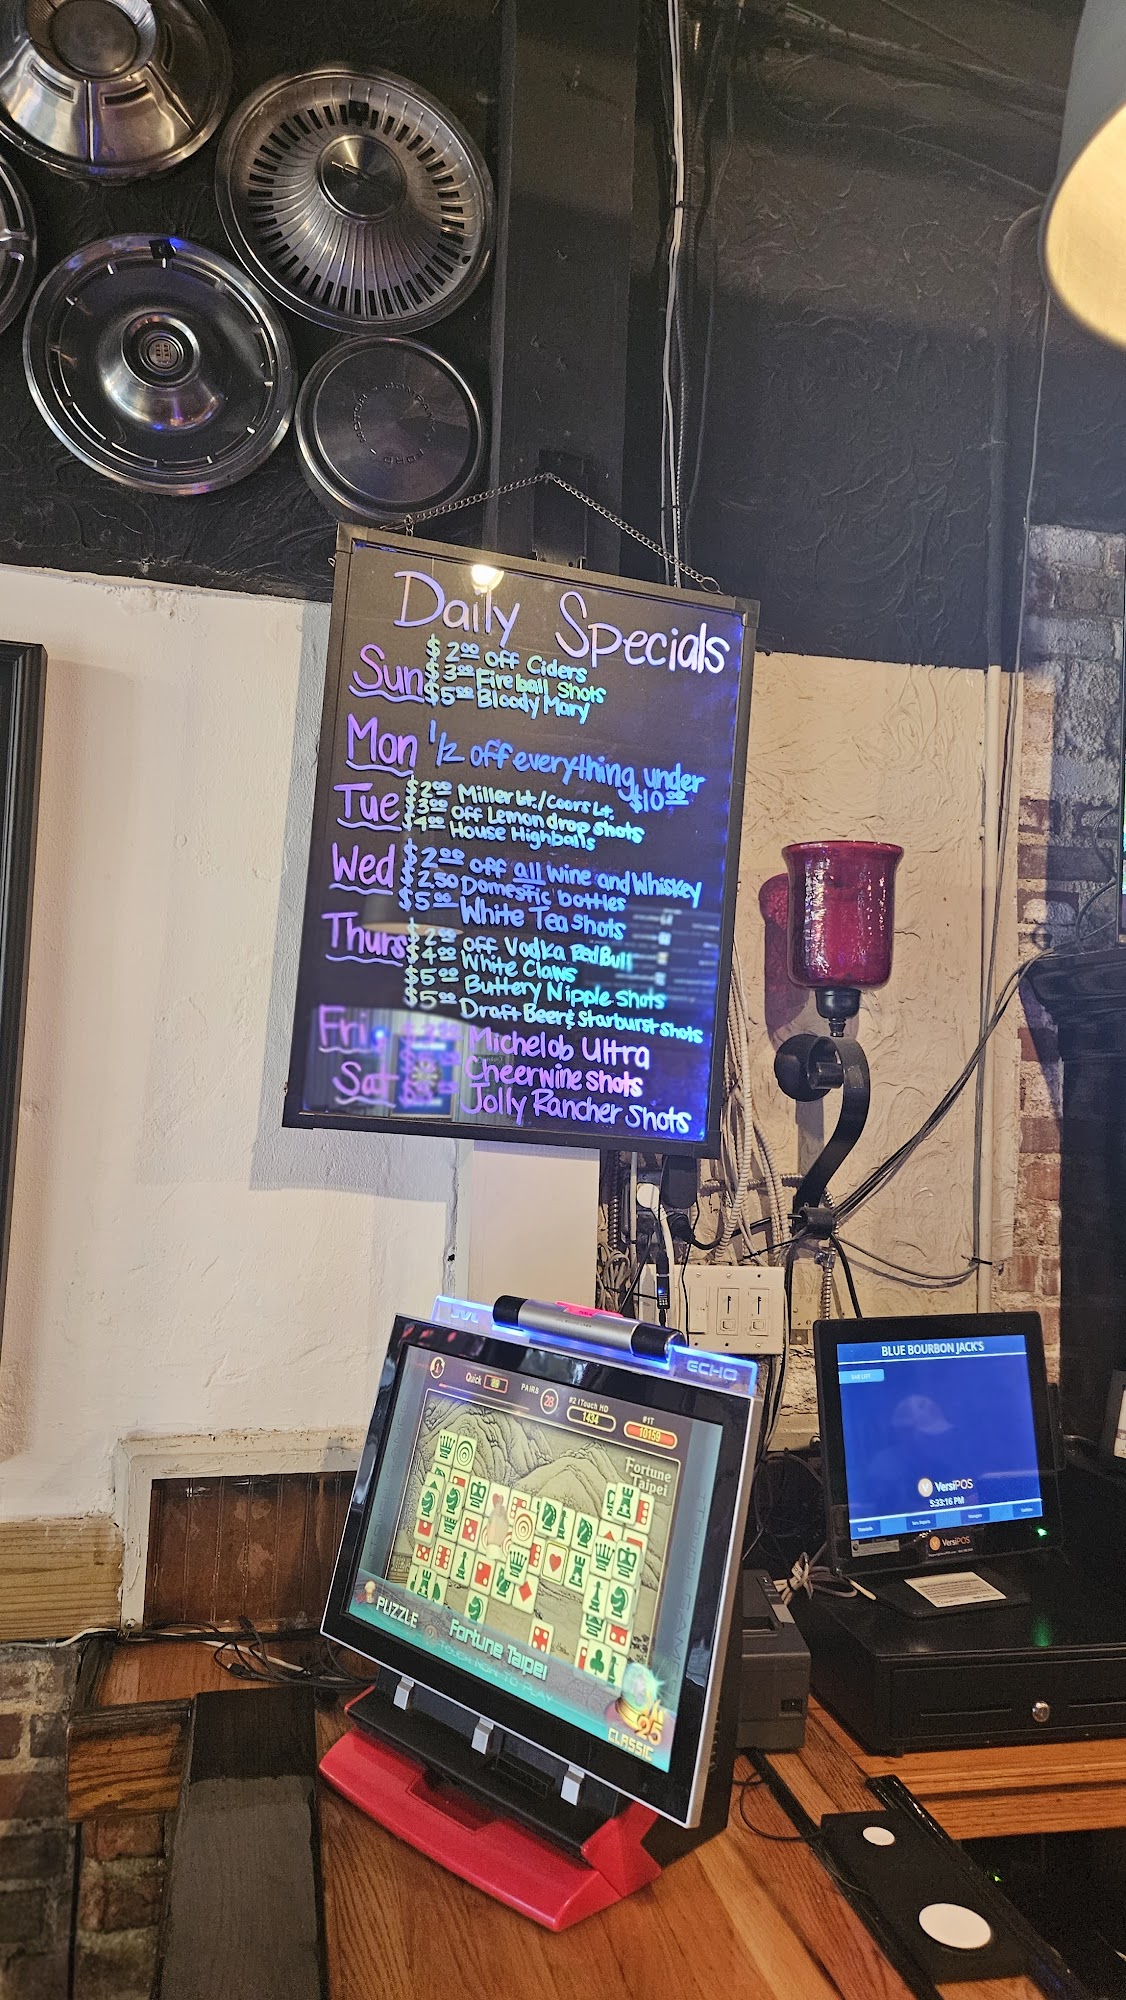 FORD MOTOR COMPANY
Daily Specials
Sun $2.00 off Ciders
$3.00 Fireball Shots
$5.00 Bloody Mary
Mon 1/2 off everything under
$10.00
Tue $2.00 Miller Lt./Coors Lt.
$3.00 off Lemon drop shots
$4.00 House Highballs
Wed $2.00 off all wine and Whiskey
$2.50 Domestic bottles
$5.00 White Tea Shots
Thurs $2.00 off Vodka RedBull
$4.00 White Claws
$5.00 Buttery Nipple Shots
$5.00 Draft Beer & Starburst shots
Fri. Michelob Ultra
Sat Cheerwine shots
Jolly Rancher Shots
JVL
ECHO
Quick
PAIRS 28
#2 iTouch HD
1434
#1T
10159
Fortune
Taipei
PUZZLE
Fortune Taipei
TOUCH TO PLAY
25
CLASSIC
BLUE BOURBON JACK'S
BAR LEFT
VersiPOS
5:33:16 PM
VersiPOS